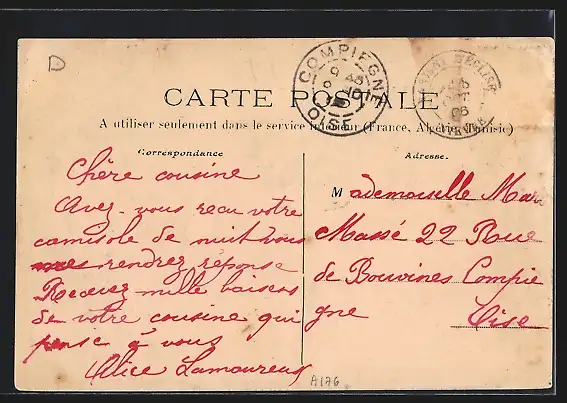 D
COMPIEGNE
OISE
CARTE POSTALE
A utiliser seulement dans le service intérieur (France, Algérie, Tunisie)
Correspondance
Chère cousine
Avez-vous recu votre
camisole de nuit vous
rendrez réponse
Recevez mille baisers
de votre cousine qui
pense à vous
Alice Lamoureux
Adresse.
Mademoiselle
Massé 22 Rue
de Bouvines Compie
gne Oise
A176